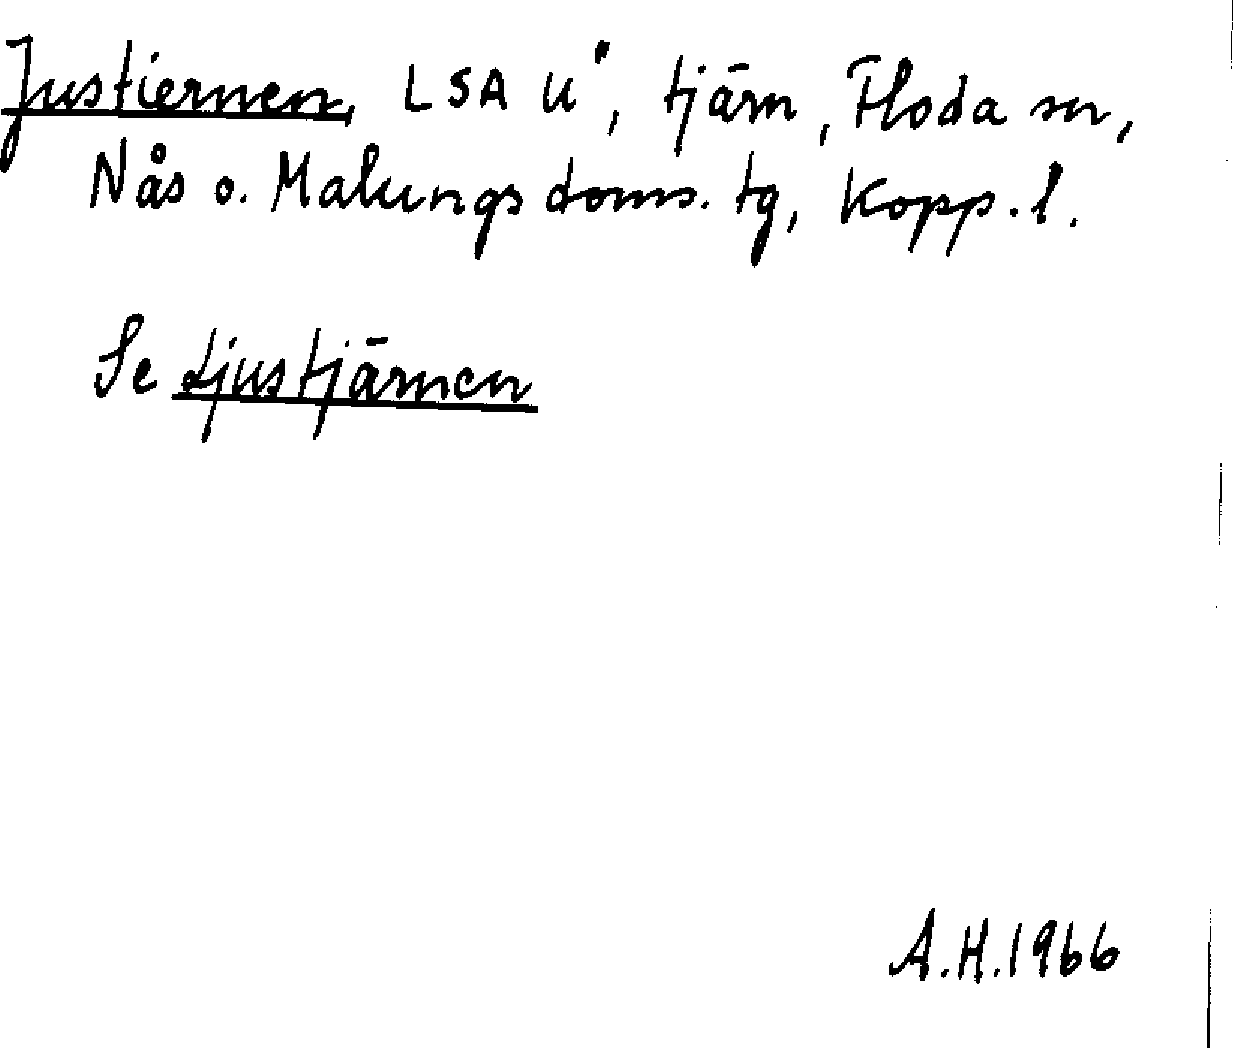 Justiernen, LSA U", tjärn, Floda sn,
Nås o. Malungs doms. tg, Kopp. l.
Se Ljustjärnen
A.H. 1966